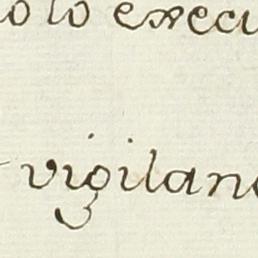 lo execu
vigilan